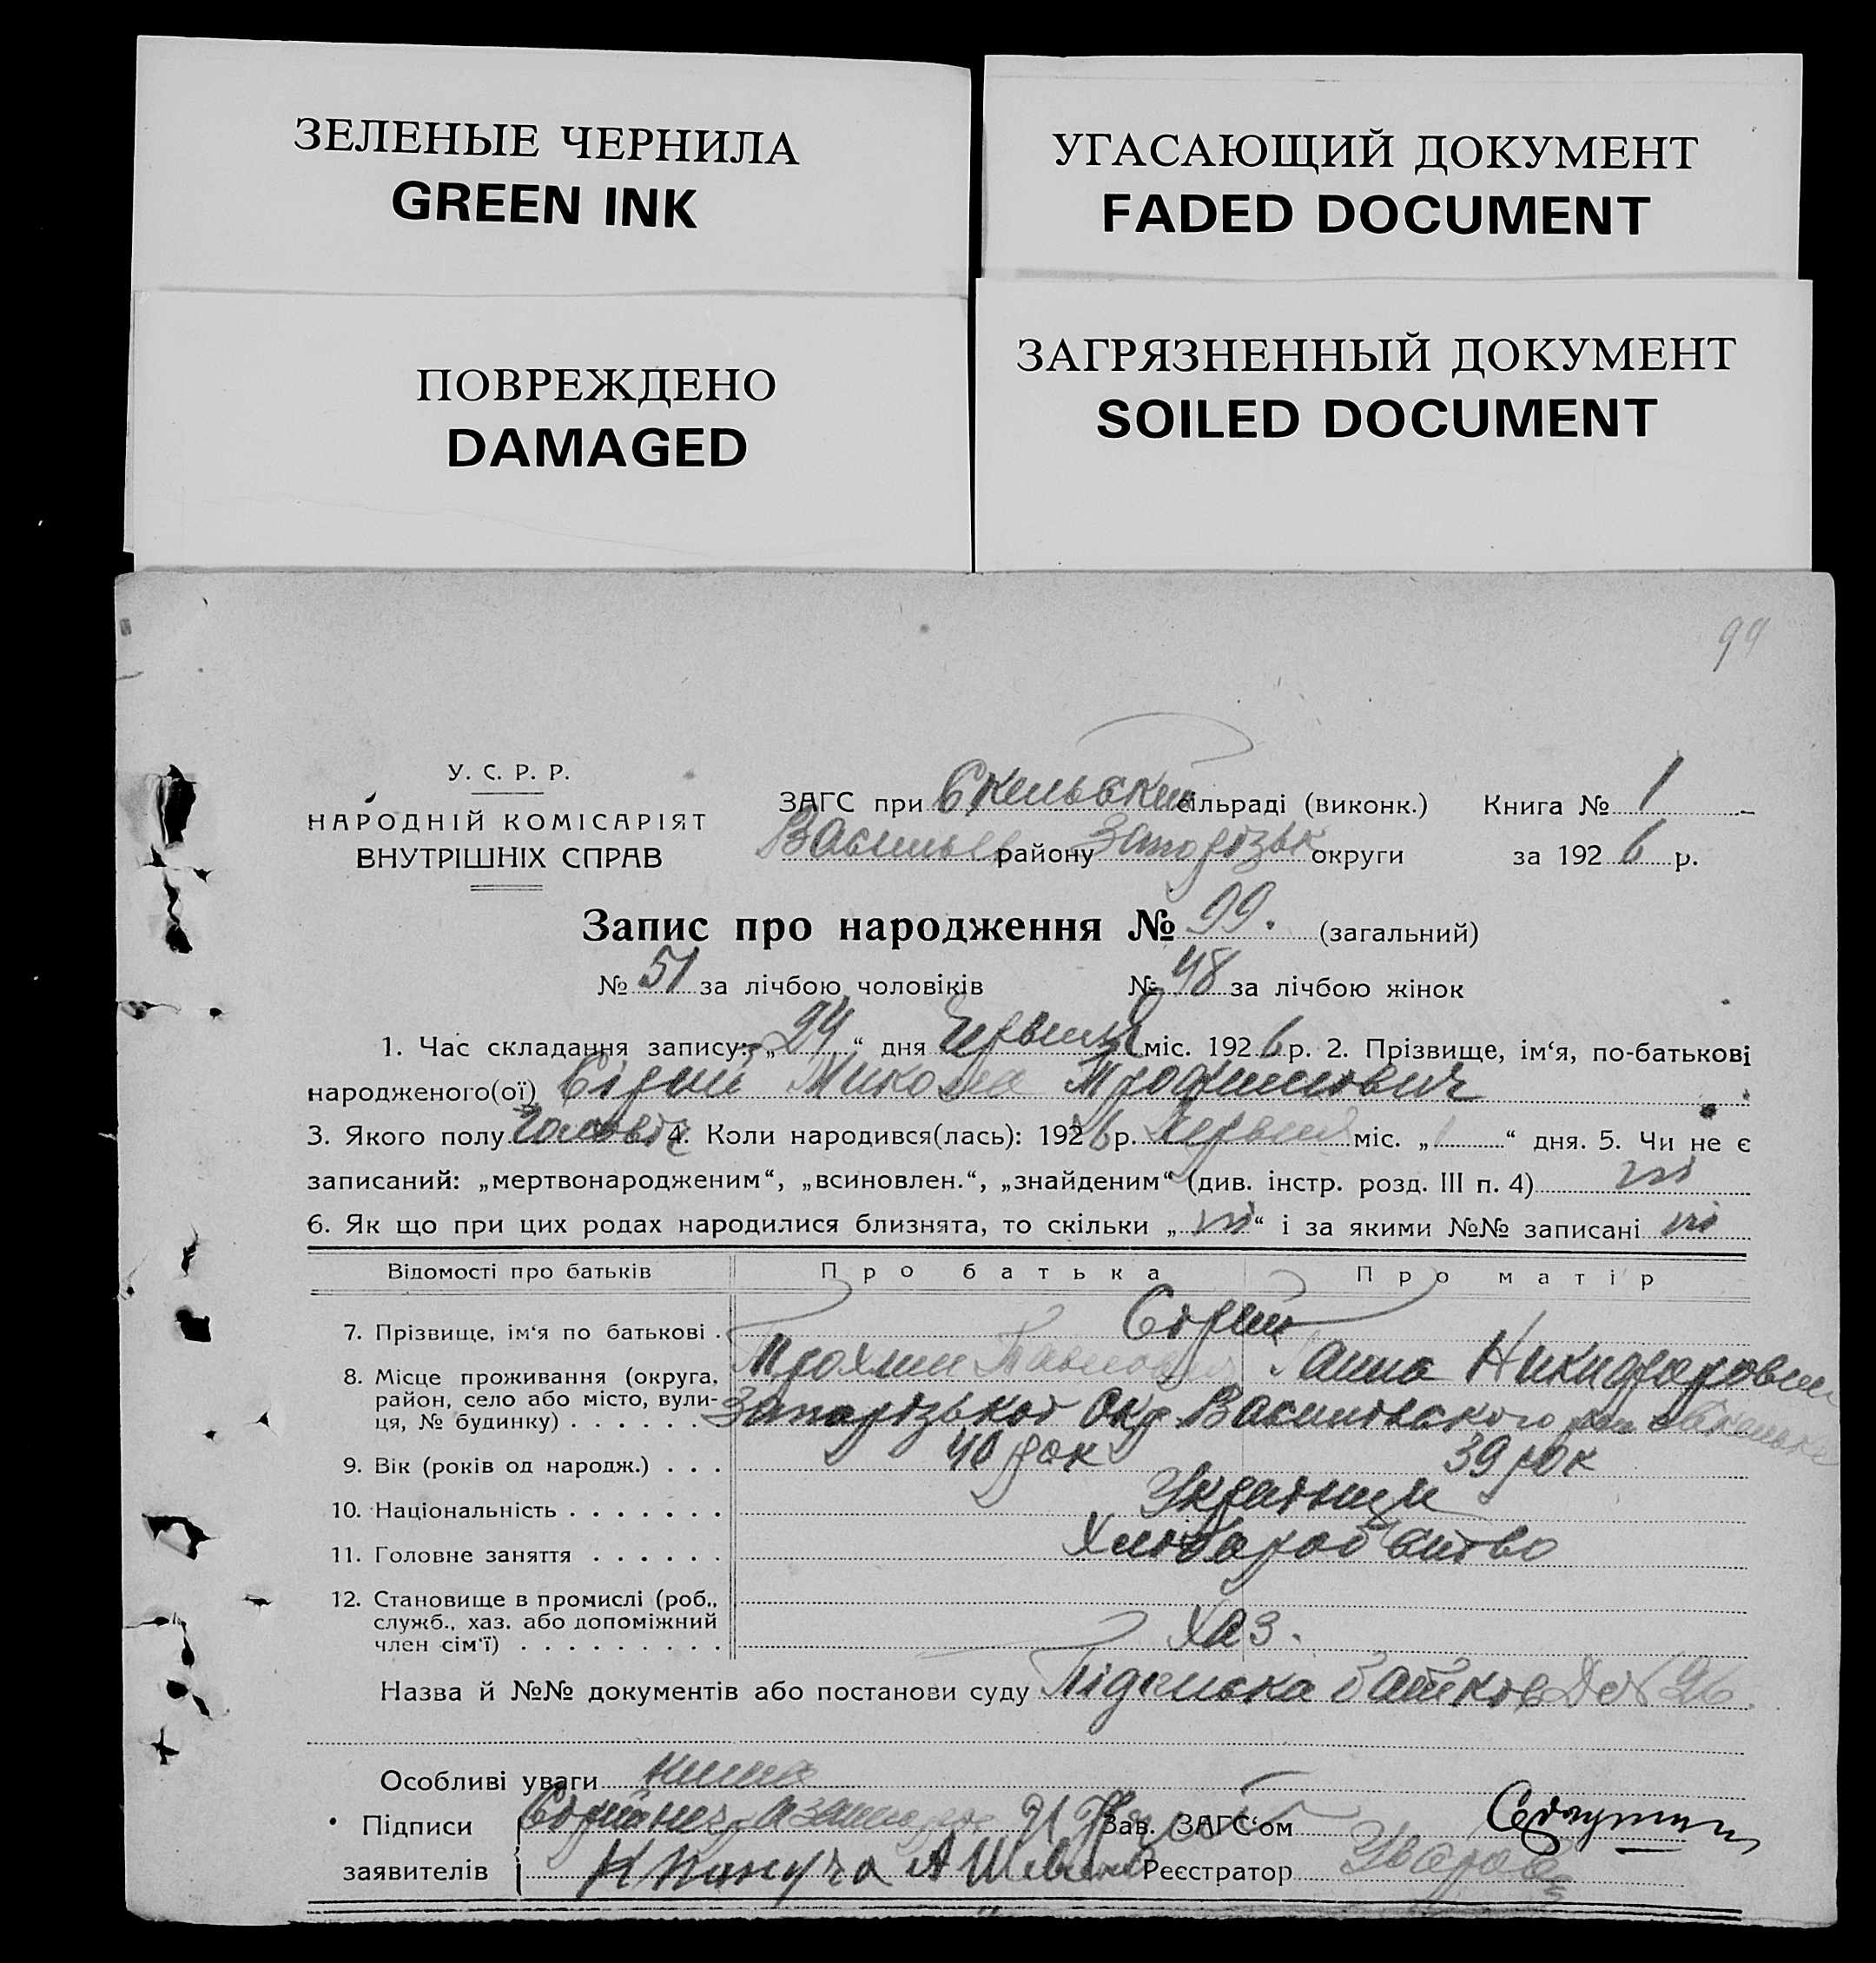 ЗЕЛЕНЫЕ ЧЕРНИЛА
GREEN INK
УГАСАЮЩИЙ ДОКУМЕНТ
FADED DOCUMENT
ПОВРЕЖДЕНО
DAMAGED
ЗАГРЯЗНЕННЫЙ ДОКУМЕНТ
SOILED DOCUMENT
99
У. С. Р. Р.
НАРОДНІЙ КОМІСАРІЯТ
ВНУТРІШНІХ СПРАВ
ЗАГС при Скельский сільраді (виконк.) Книга № 1
району Запорізьк округи за 1926 р.
Запис про народження № 99. (загальний)
№ 51 за лічбою чоловіків № 48 за лічбою жінок
1. Час складання запису: „24“ дня Червня міс. 1926 р. 2. Прізвище, ім‘я, по-батькові
народженого(ої) Сірий Микола Трофимович
3. Якого полу Чоловіч 4. Коли народився(лась): 1926 р. Червня міс. „1“ дня. 5. Чи не є
записаний: „мертвонародженим“, „всиновлен.“, „знайденим“ (див. інстр. розд. III п. 4) ні
6. Як що при цих родах народилися близнята, то скільки „ні“ і за якими №№ записані ні
Відомості про батьків Про батька Про матір
7. Прізвище, ім‘я по батькові . Сірий
Трохим Павлович Ганна Никифоровна
8. Місце проживання (округа, район, село або місто, вулиця, № будинку) . . . . . . Запорізької Окр Василівского
9. Вік (років од народж.) . . . 40 рок 39 рок
10. Національність . . . . . . . Українци
11. Головне заняття . . . . . . Хліборобство
12. Становище в промислі (роб., служб., хаз. або допоміжний член сім‘ї) . . . . . . . . . Хаз.
Назва й №№ документів або постанови суду
Особливі уваги нима
Підписи Сірий Зав. ЗАГС‘ом
заявителів Реєстратор